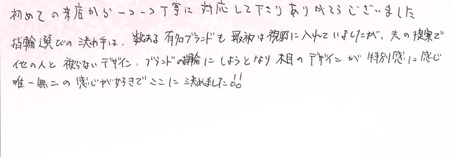 初めての来店から一つ一つ丁寧に対応して下さりありがとうございました
指輪選びの決め手は、数ある有名ブランドも最初は視野に入れていましたが、夫の提案で
他の人と被らないデザイン、ブランドの指輪にしようとなり木目のデザインが特別感に感じ
唯一無二の感じが好きでここに決めました!!